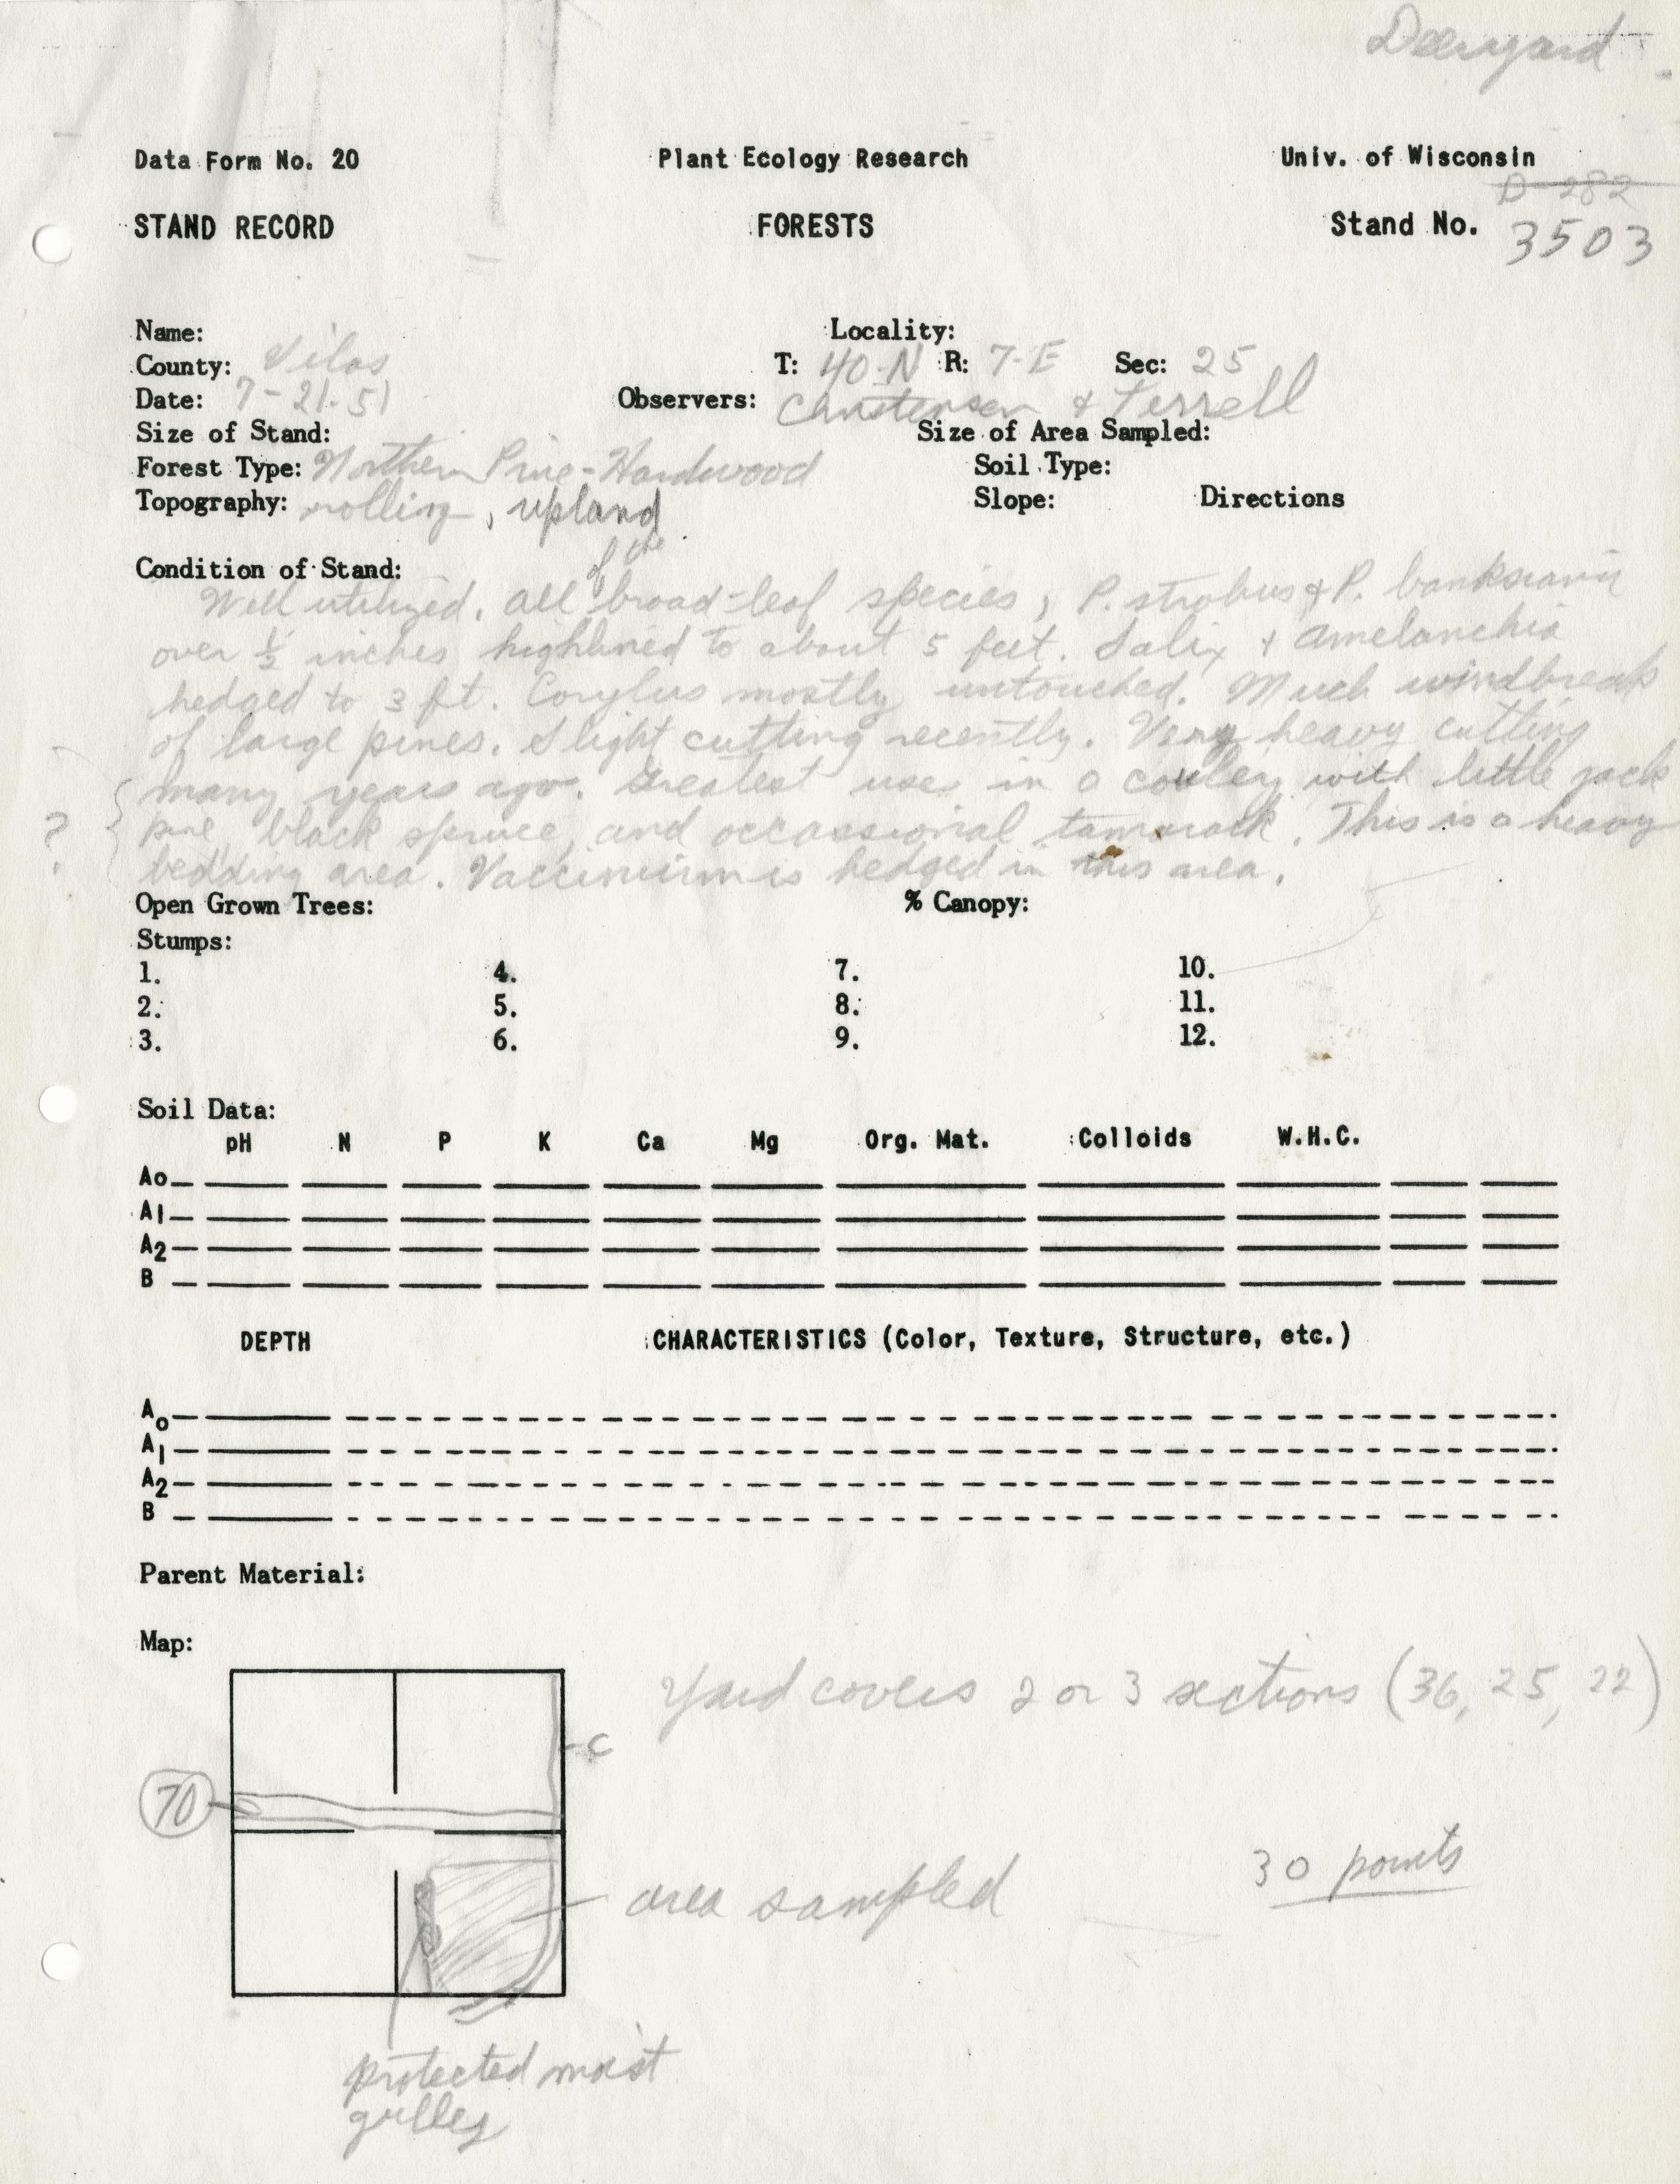 Deeryard
Data Form No. 20 Plant Ecology Research Univ. of Wisconsin
D-282
STAND RECORD FORESTS Stand No. 3503
Name: Locality:
County: Vilas T: 40-N R: 7-E Sec: 25
Date: 7-21-51 Observers: Christensen & Terrell
Size of Stand: Size of Area Sampled:
Forest Type: Northern Pine-Hardwood Soil Type:
Topography: rolling, upland Slope: Directions
Condition of Stand:
of the
Well utilized. All broad-leaf species, P. strobus & P. banksiana
over ½ inches highlined to about 5 feet. Salix & Amelanchia
hedged to 3 ft. Corylus mostly untouched. Much windbreak
of large pines. Slight cutting recently. Very heavy cutting
many years ago. Greatest use in a couley with little jack
? pine, black spruce, and occassional tamarack. This is a heavy
bedding area. Vaccinium is hedged in this area.
Open Grown Trees: % Canopy:
Stumps:
1. 4. 7. 10.
2. 5. 8. 11.
3. 6. 9. 12.
Soil Data:
pH N P K Ca Mg Org. Mat. Colloids W.H.C.
Ao
A1
A2
B
DEPTH CHARACTERISTICS (Color, Texture, Structure, etc.)
Ao
A1
A2
B
Parent Material:
Map:
Yard covers 2 or 3 sections (36, 25, 22)
C
70
30 points
area sampled
protected moist
gulley